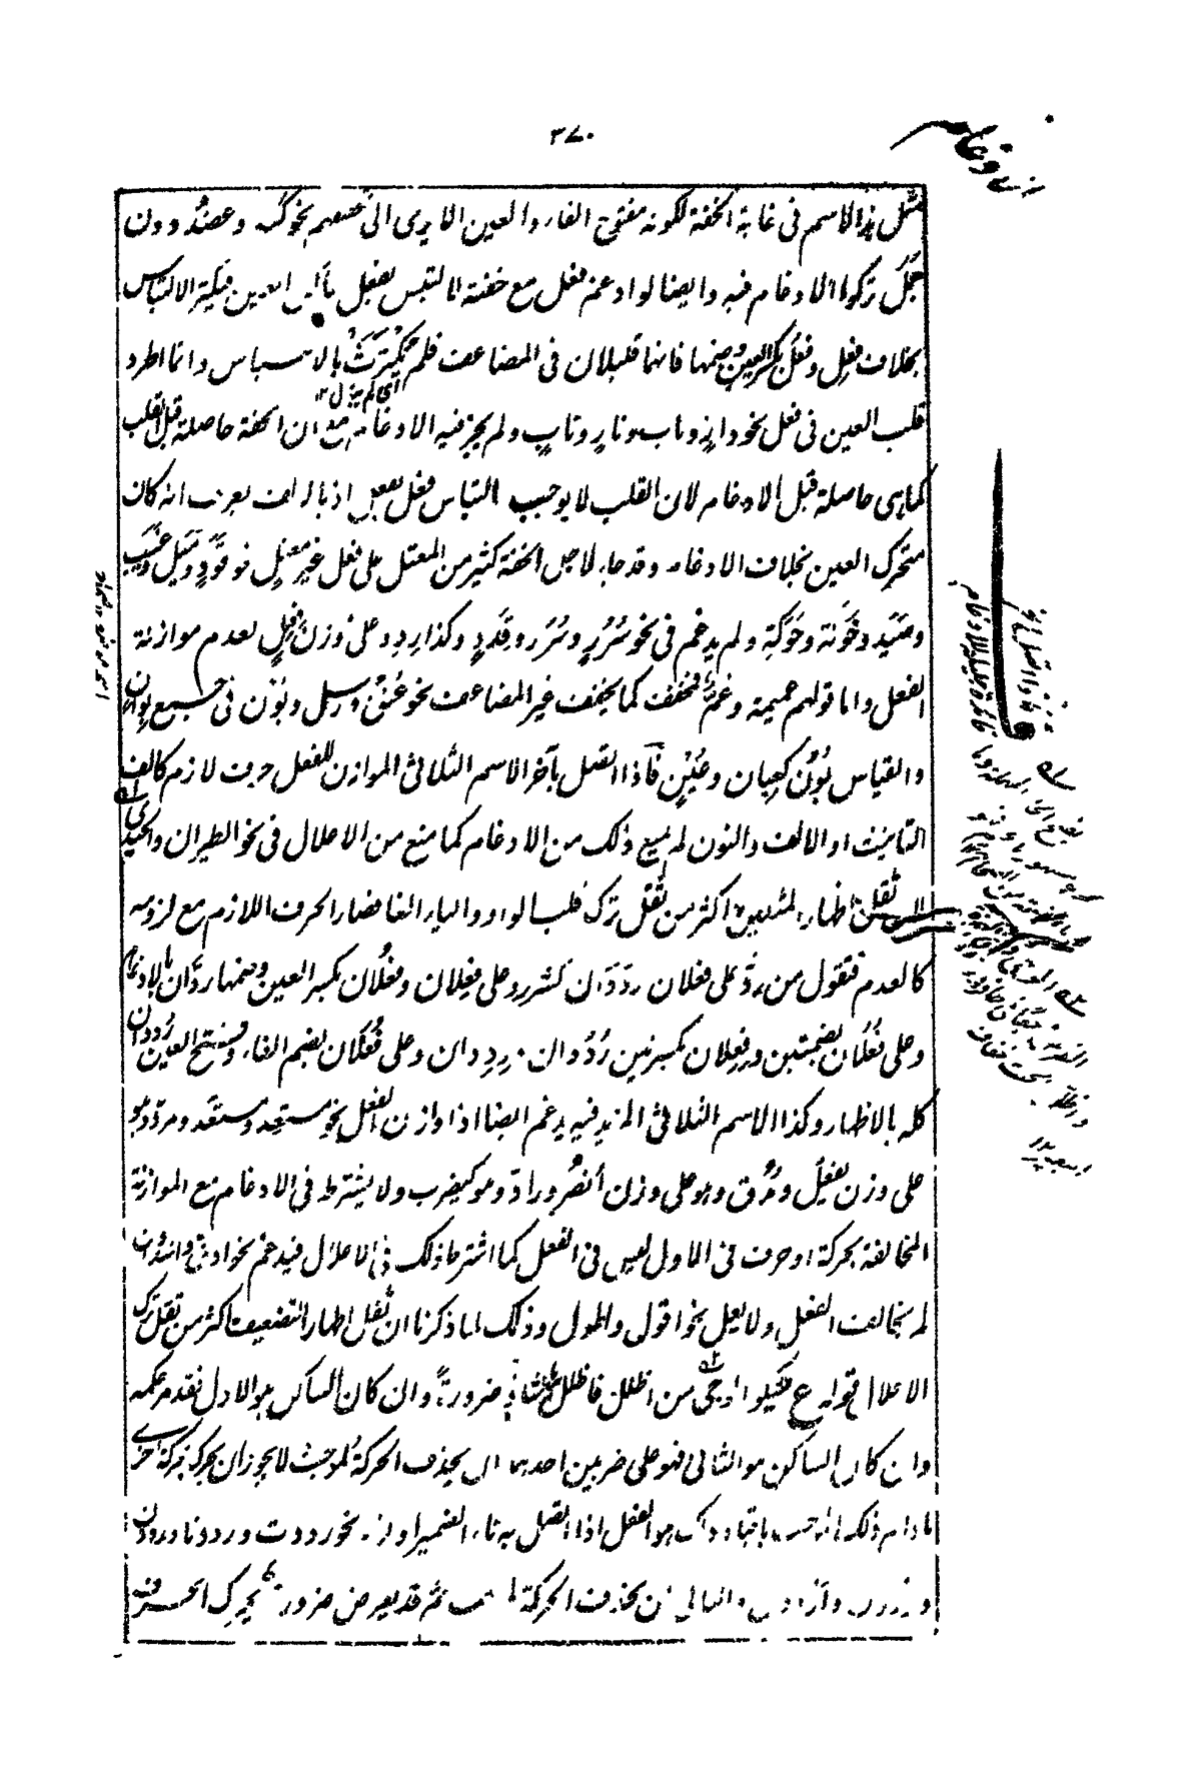 ٣٧٠
مثل هذا الاسم فى غاية الخفة لكونه مفتوح الفاء والعين الا يرى الى تخفيفهم نحو كبد وعضد دون
جمل تركوا الادغام فيه وايضا لو ادغم فعل مع خفته لالتبس بفعل ساكن العين فيكثر الالتباس
بخلاف فعل وفعل بكسر العين وضمها فانهما قليلان فى المضاعف فلم يكترث بالالتباس وانما اطرد
اى لم يبال ١٢
قلب العين فى فعل نحو دار وباب ونار وناب ولم يجز فيه الادغام مع ان الخفة حاصلة قبل القلب
كما هى حاصلة قبل الادغام لان القلب لا يوجب التباس فعل بفعل اذ بالالف يعرف انه كان
متحرك العين بخلاف الادغام وقد جاء لاجل الخفة كثير من المعتل على فعل غير معل نحو قود وميل وغيب
وصيد وخونة وحوكة ولم يدغم فى نحو سرر وسرر وقدد وكذا ردد على وزن فعل لعدم موازنة
الفعل واما قولهم عميمة وعم فمخفف كما يخفف غير المضاعف نحو عنق ورسل وبون فى جمع بوان
والقياس بون كعيان وعين فاذا اتصل بآخر الاسم الثلاثى الموازن للفعل حرف لازم كالف
التانيث او الالف والنون لم يمنع ذلك من الادغام كما منع من الاعلال فى نحو الطيران والحيدى
لان ثقل اظهار المثلين اكثر من ثقل ترك قلب الواو والياء الفا فصار الحرف اللازم مع لزومه
كالعدم فتقول من رد على فعلان رددان كشرر وعلى فعلان وفعلان بكسر العين وضمها ردان بالادغام
وعلى فعلان بضمتين وفعلان بكسرتين رددان ورددان وعلى فعلان بضم الفاء وفتح العين رددان
كله بالاظهار وكذا الاسم الثلاثى المزيد فيه يدغم ايضا اذا وازن الفعل نحو مستعد ومستعد ومرد وهو
على وزن يفعل ومدق وهو على وزن أنصر وراد وهو كيضرب ولا يشترط فى الادغام مع الموازنة
المخالفة بحركة او حرف فى الاول ليس فى الفعل كما اشترط ذلك فى الاعلال فيدغم نحو ادق واشد وان
لم يخالف الفعل ولا يعل نحو اقول واطول وذلك لما ذكرنا ان ثقل اظهار التضعيف اكثر من ثقل ترك
الاعلال قوله ع تشكو الوجى من اظلل فاظلل شاذ ضرورة وان كان الساكن هو الاول فقدم حكمه
وان كان الساكن هو الثانى فهو على ضربين احدهما ان يحذف الحركة لموجب لا يجوز ان يحرك بحركة اخرى
ما دام ذلك الموجب باقيا وذلك هو الفعل اذا اتصل به تاء الضمير او نونه نحو رددت ورددنا ورددن
ويرددن وارددن والثانى ان تحذف الحركة لموجب ثم قد يعرض ضرورة يحرك الحرف